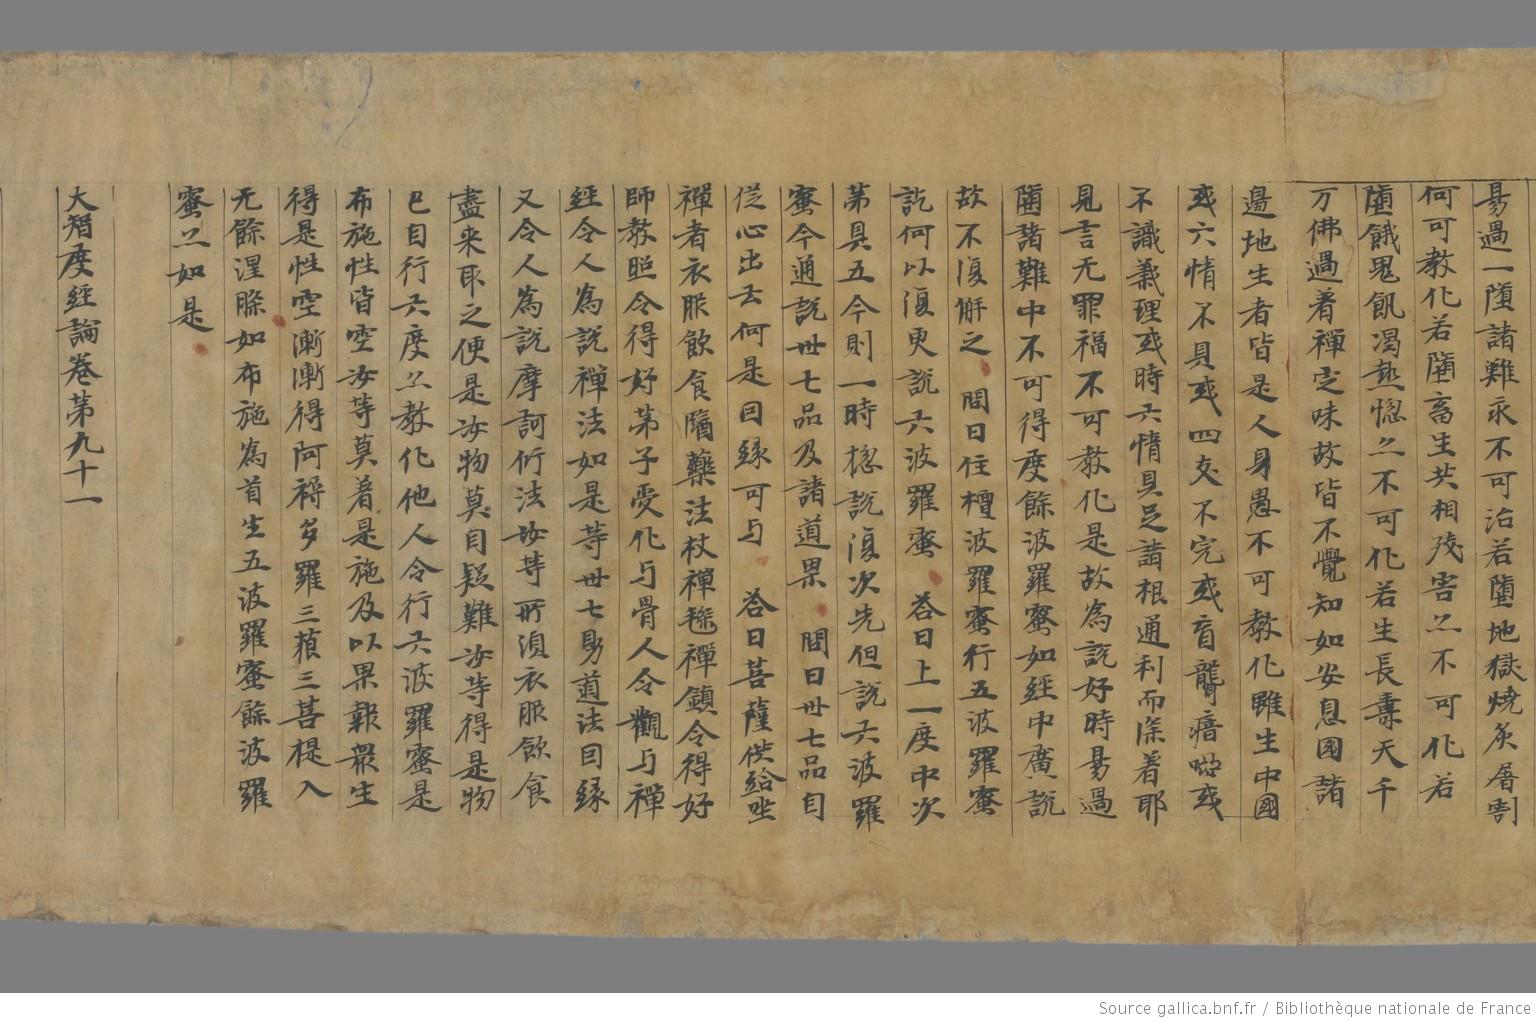 易過一墮諸難永不可治若墮地獄燒炙屠割
何可教化若墮畜生共相殘害亦不可化若
墮餓鬼飢渴熱惱亦不可化若生長壽天千
万佛過著禪定味故皆不覺知如安息國諸
邊地生者皆是人身愚不可教化雖生中國
或六情不具或四支不完或盲聾瘖啞或
不識義理或時六情具足諸根通利而深著耶
見言无罪福不可教化是故為說好時易過
墮諸難中不可得度餘波羅蜜如經中廣說
故不復解之 問曰住檀波羅蜜行五波羅蜜
訖何以復更說六波羅蜜 荅曰上一度中次
苐具五今則一時揔說復次先但說六波羅
蜜今通說卅七品及諸道果 問曰卅七品自
從心出去何是因緣可与 荅曰菩薩供給坐
禪者衣服飲食醫藥法杖禪毱禪鎮令得好
師教照令得好苐子受化与骨人令觀与禪
經令人為說禪法如是等卅七助道法因緣
又令人為說摩訶衍法汝等所湏衣服飲食
盡来取之便是汝物莫自疑難汝等得是物
已自行六度亦教化他人令行六波羅蜜是
布施性皆空汝等莫著是施及以果報眾生
得是性空漸漸得阿耨多羅三藐三菩提入
无餘涅槃如布施為首生五波羅蜜餘波羅
蜜亦如是
大智度經論卷苐九十一
Source gallica.bnf.fr / Bibliothèque nationale de France